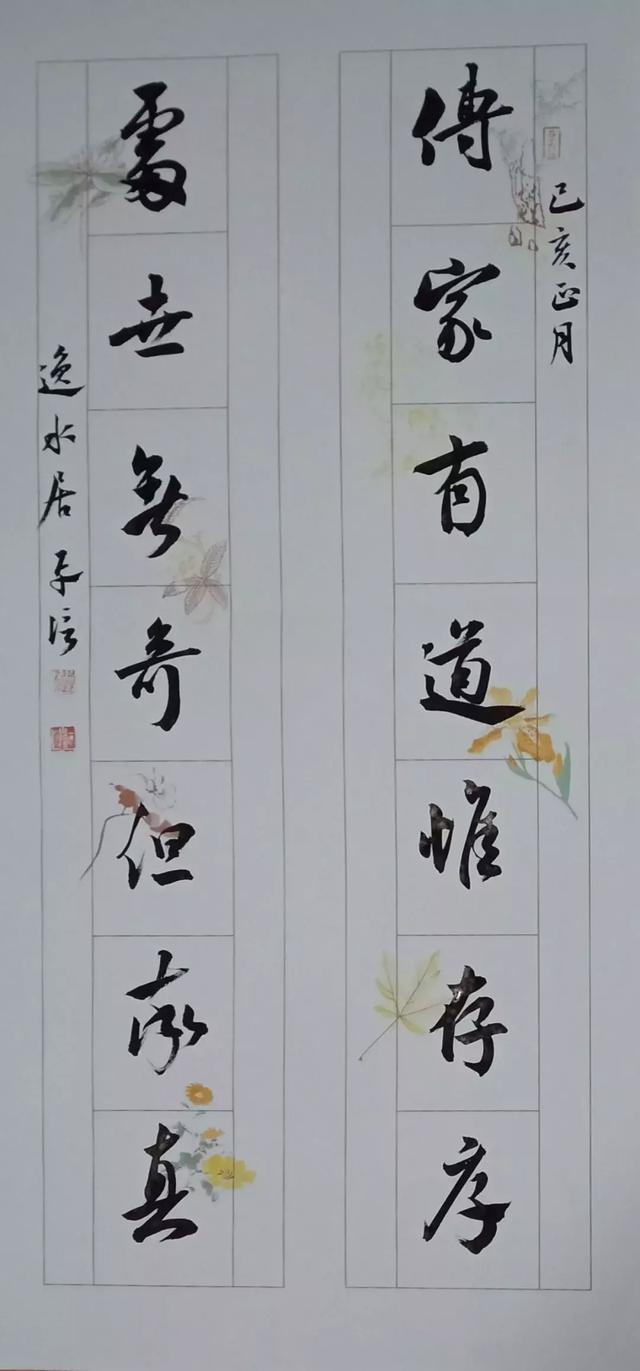 己亥正月
傳家有道惟存厚
處世無奇但率真
逸水居子信